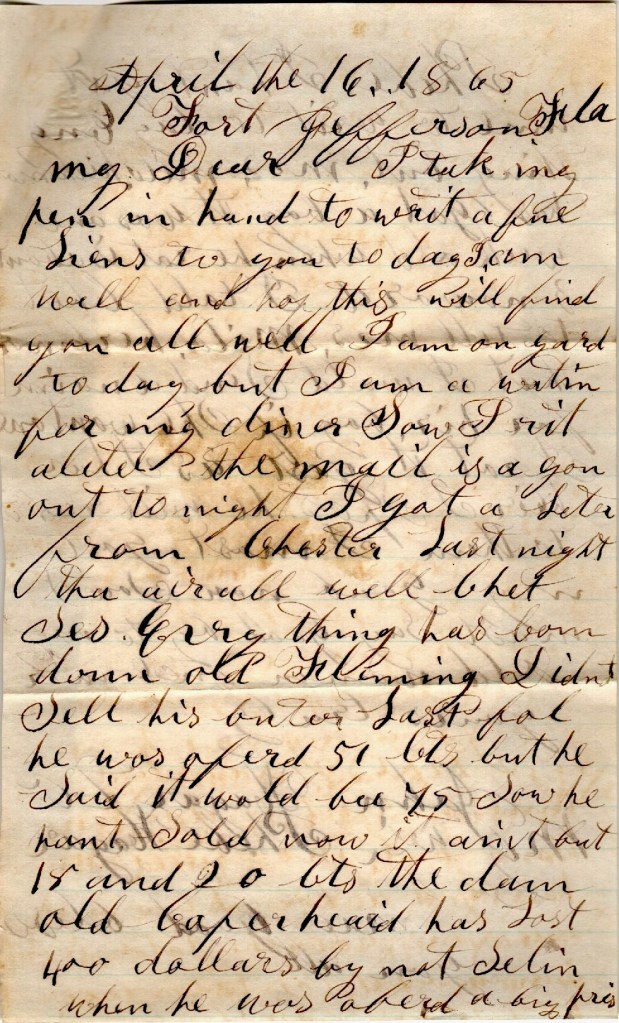 April the 16. 1865
Fort Jefferson Fla
my Dear I tak my
pen in hand to writ a fue
Liens to you to day I am
well and hop this will find
you all well I am on gard
to day but I am a watin
for my diner Sow I rit
a leter the mail is a gon
out to night I got a Leter
from Chester Last night
tha air all well Chet
Ses Evry thing has bom
down old Fleming Didnt
Sell his buter Last fal
he was oferd 51 cts but he
Said it wold bee 75 Sow he
hant Sold now it aint but
18 and 20 cts the dam
old Coperheaid has Lost
400 dollars by not Selin
when he was oferd a big pris